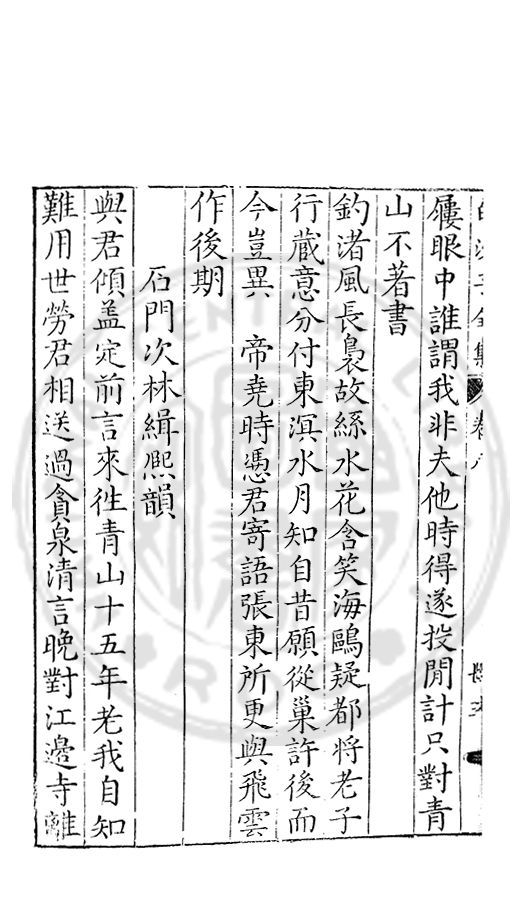 屢眼中誰謂我非夫他時得遂投閒計只對青
山不著書
釣渚風長裊故絲水花含笑海鷗疑都將老子
行藏意分付東溟水月知自昔願從巢許後而
今豈異　帝堯時憑君寄語張東所更與飛雲
作後期
石門次林緝熙韻
與君傾盖定前言來徃青山十五年老我自知
難用世勞君相送過貪泉清言晚對江邊寺離